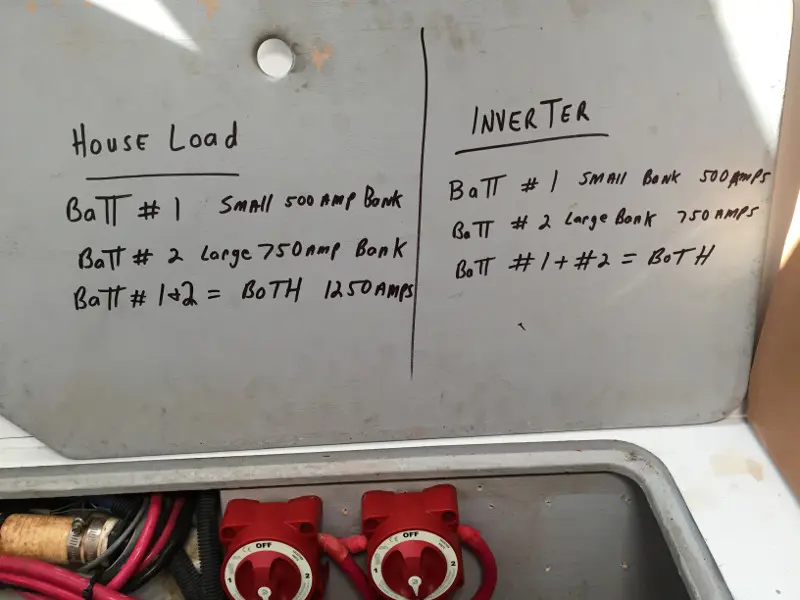 HOUSE LOAD
BATT # 1 SMALL 500 AMP BANK
BATT # 2 Large 750 AMP BANK
BATT # 1+2 = BOTH 1250 AMPS
INVERTER
BATT # 1 SMALL BANK 500 AMPS
BATT # 2 Large Bank 750 AMPS
BATT #1 + #2 = BOTH
OFF
1 2
OFF
1 2